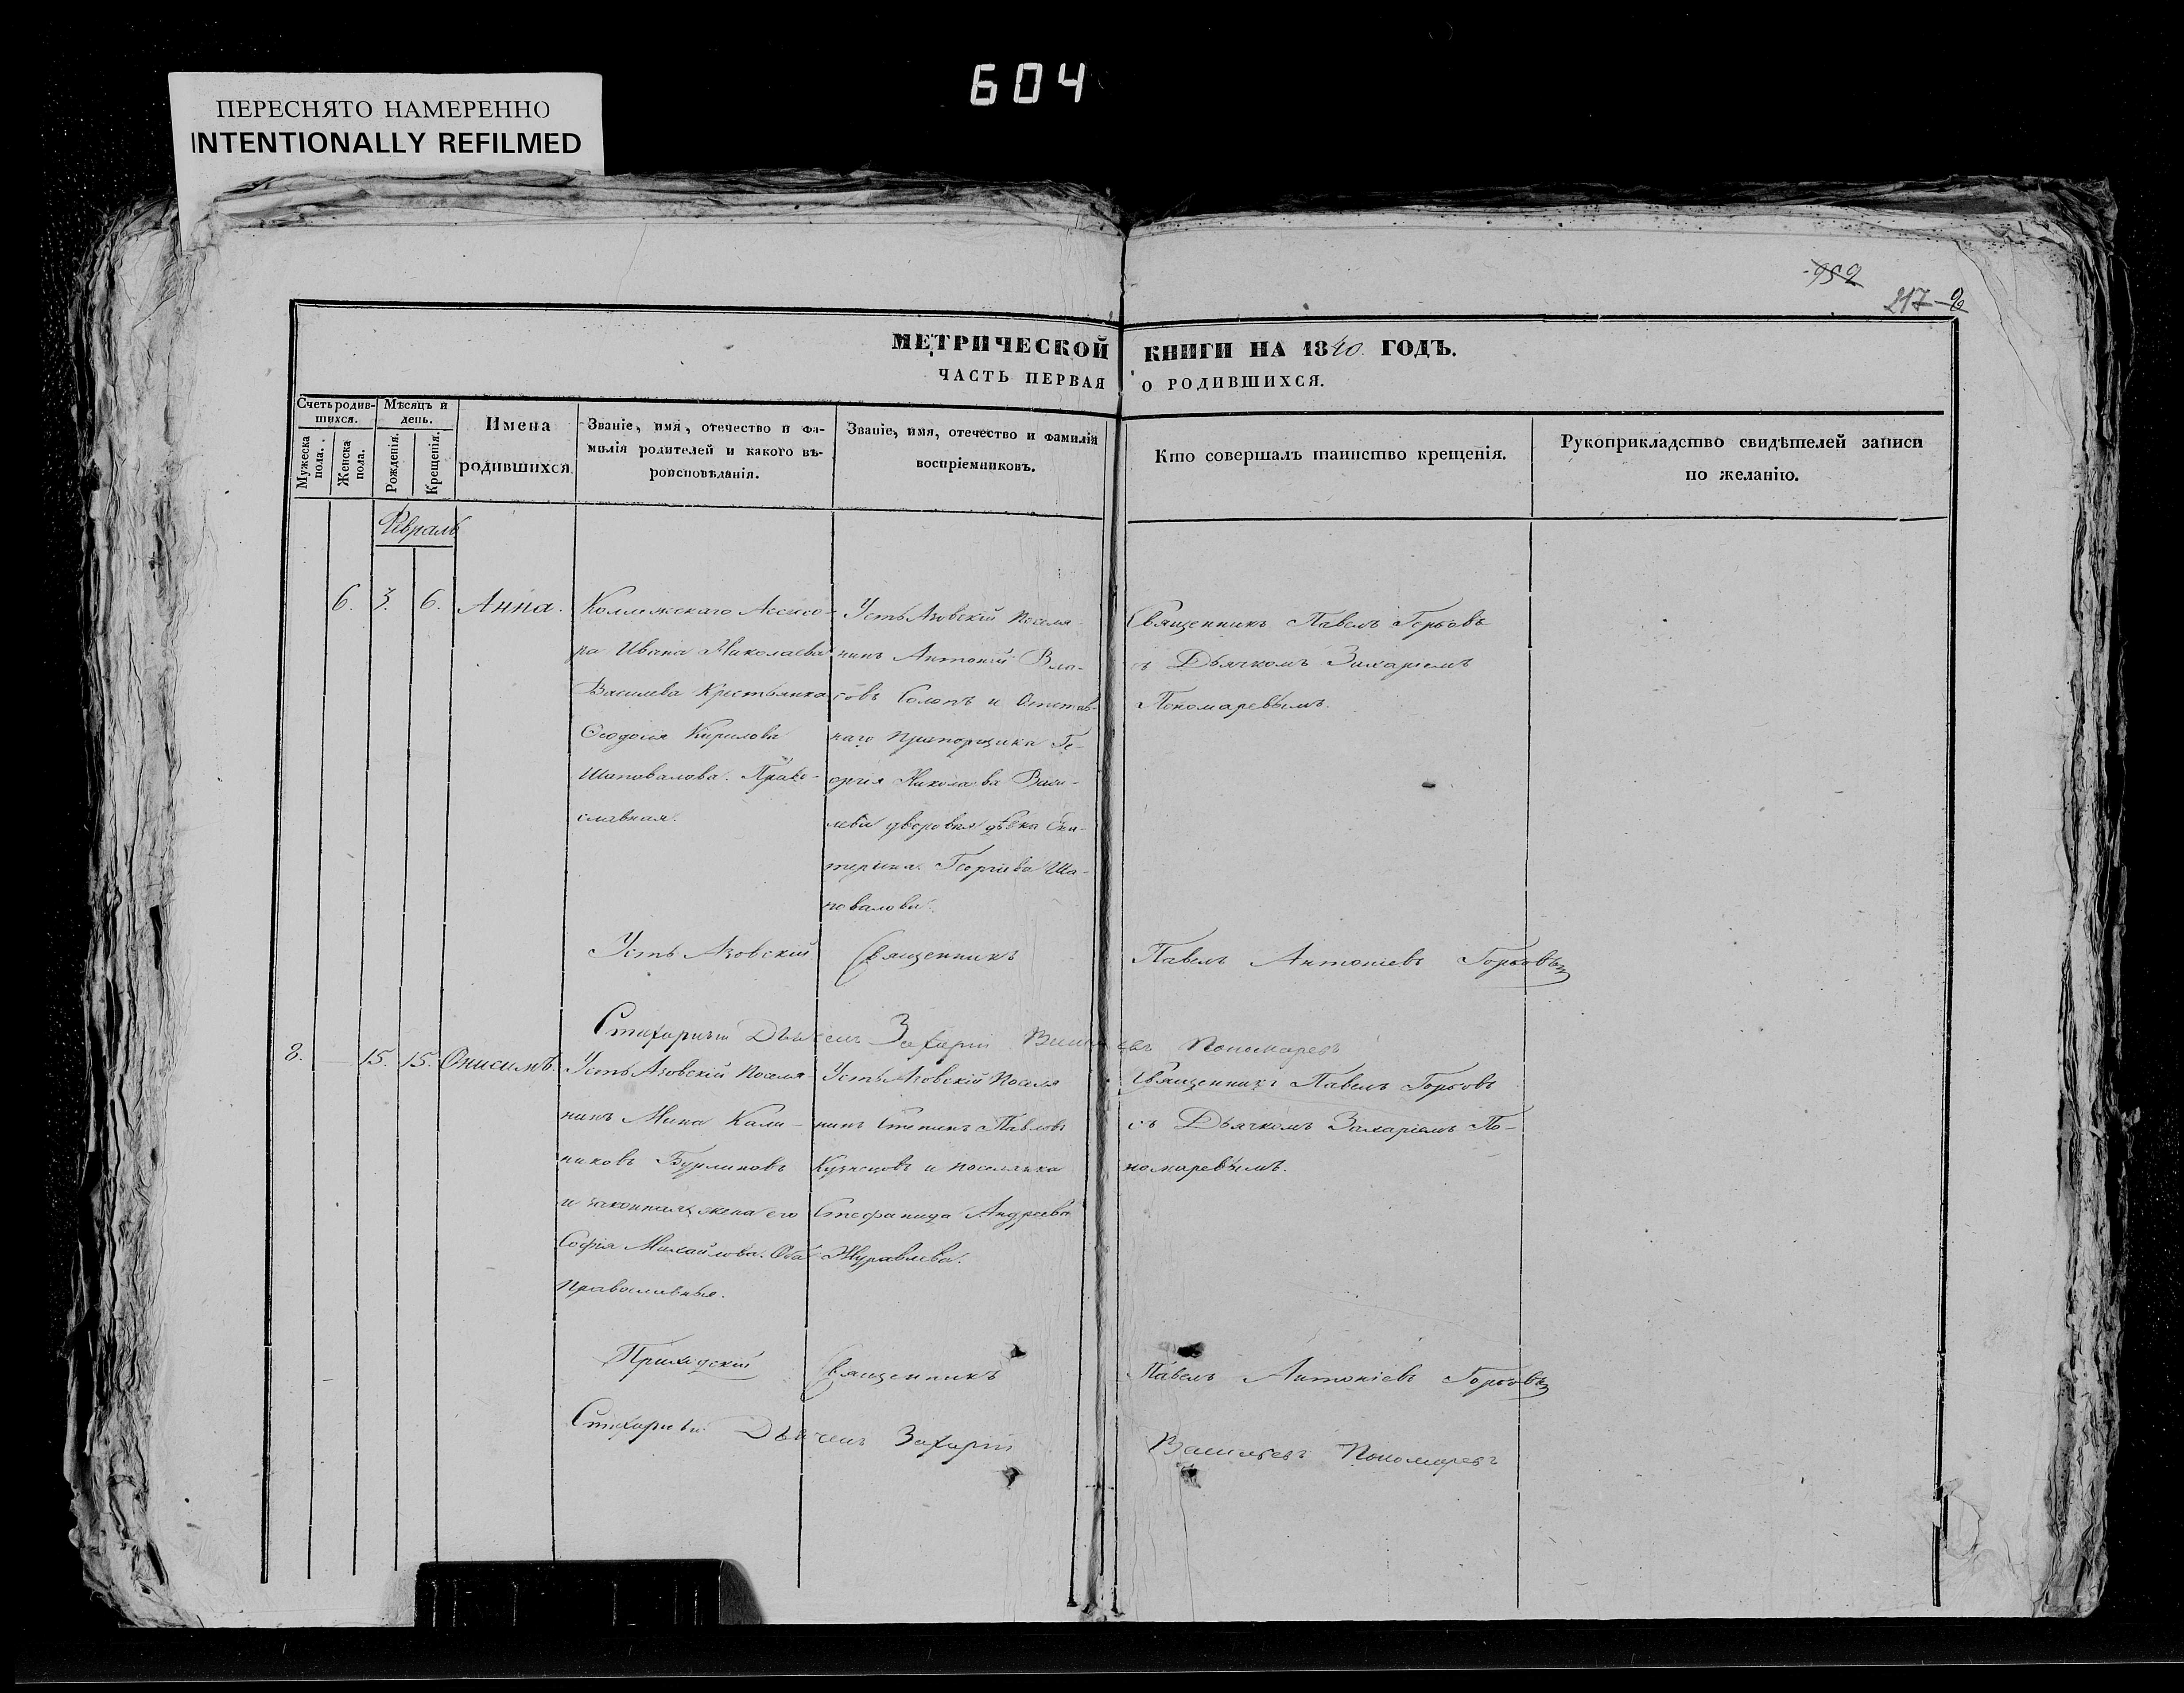 604
ПЕРЕСНЯТО НАМЕРЕННО
INTENTIONALLY REFILMED
952
217-2
МЕТРИЧЕСКОЙ КНИГИ НА 1840. ГОДЪ.
ЧАСТЬ ПЕРВАЯ О РОДИВШИХСЯ.
Счетъ родив-
шихся.
Мужеска
пола.
Женска
пола.
Мѣсяцъ и
день.
Рожденія.
Крещенія.
Имена
родившихся.
Званіе, имя, отечество и фа-
милія родителей и какого вѣ-
роисповѣданія.
Званіе, имя, отечество и фамилія
воспріемниковъ.
Кто совершалъ таинство крещенія.
Рукоприкладство свидѣтелей записи
по желанію.
Февраль
6. 3. 6. Анна.
Коллежскаго Ассесо-
ра Ивана Николаева
Василева Крестьянка
Ѳеодосія Кирилова
Шаповалова. Право-
славная.
Усть Азовскій Поселя-
нинъ Антоній Вла-
совъ Солопъ и Отстав-
наго Прапорщика Ге-
оргія Николаева Васи-
лева дворовая дѣвка Ека-
терина Георгіева Ша-
повалова.
Священникъ Павелъ Горбовъ
съ Дьячкомъ Захаріемъ
Пономаревымъ.
Усть Азовскій Священникъ Павелъ Антоніевъ Горбовъ
Стихарный Дьячекъ Захарій Васильевъ Пономаревъ
8. 15. 15. Онисимъ.
Усть Азовскій Поселя-
нинъ Мина Кали-
никовъ Бурлиновъ
и законная жена его
Софія Михайлова. Оба
Православныя.
Усть Азовскій Поселя
нинъ Степанъ Павловъ
Кузнецовъ и поселянка
Стефанида Андреева
Журавлева.
Священникъ Павелъ Горбовъ
съ Дьячкомъ Захаріемъ По-
номаревымъ.
Приходскій Священникъ Павелъ Антоніевъ Горбовъ
Стихарный Дьячекъ Захарій Васильевъ Пономаревъ